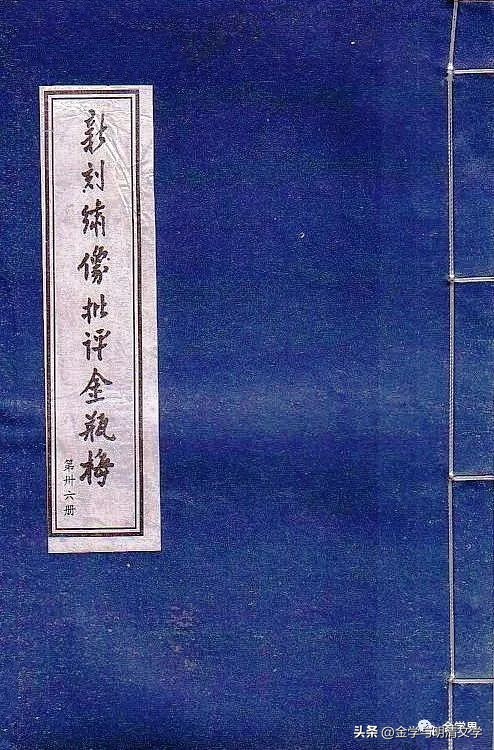 新刻绣像批评金瓶梅
第卅六册
金学界
头条 @金学与明清文学